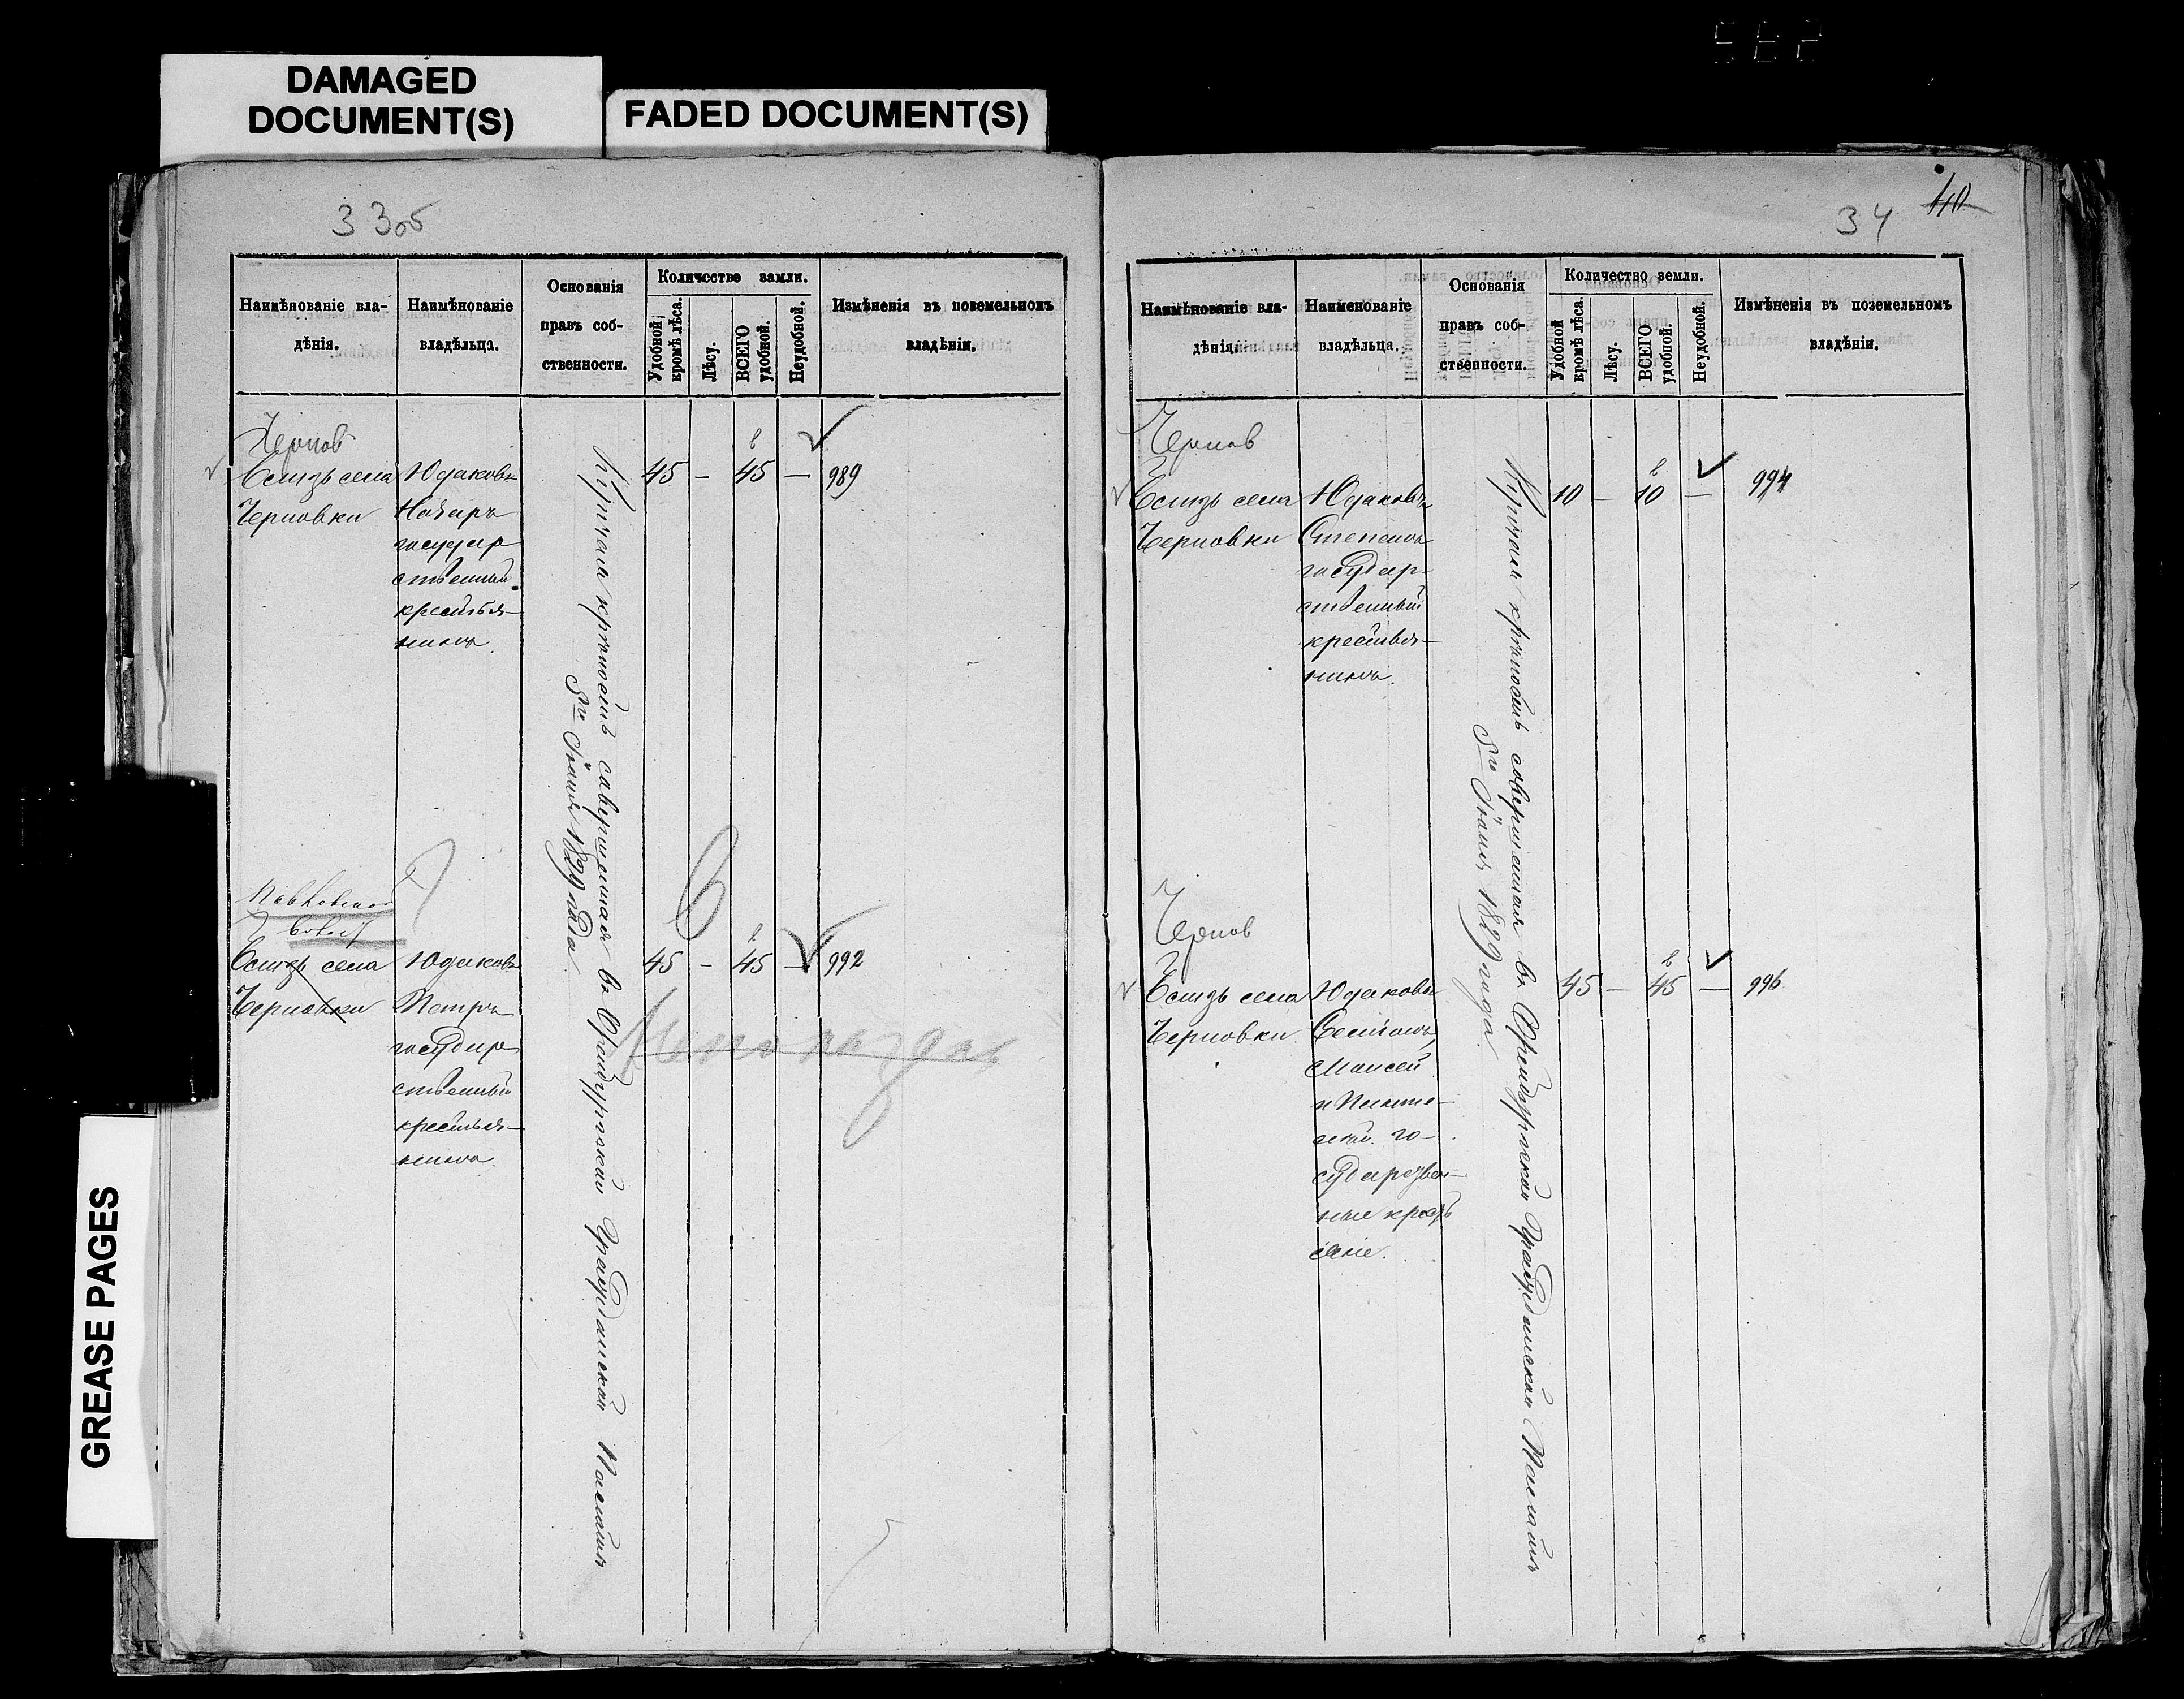 DAMAGED
DOCUMENT(S)
FADED DOCUMENT(S)
GREASE PAGES
33об
Наимѣнованіе вла-
дѣнія.
Наимѣнованіе
владѣльца.
Основанія
правъ соб-
ственности.
Количество земли.
Удобной
кромѣ лѣса.
Лѣсу.
ВСЕГО
удобной.
Неудобной.
Измѣненія въ поземельномъ
владѣніи.
Чернов
Близь села
Черновки
Юдаковъ
государ
ственный
крестья-
нинъ.
45 — 45 — 989
Купчая крѣпость савершенная въ Оренбургской Гражданской Палатѣ
8го Іюня 1829 года.
Павловской
Близь села
Черновки
Юдаковъ
Петръ
государ
ственный
крестья-
нинъ.
45 — 45 — 992
34 40
Наимѣнованіе вла-
дѣнія.
Наименованіе
владѣльца.
Основанія
правъ соб-
ственности.
Количество земли.
Удобной
кромѣ лѣса.
Лѣсу.
ВСЕГО
удобной.
Неудобной.
Измѣненія въ поземельномъ
владѣніи.
Чернов
Близь села
Черновки
Юдаковъ
Степанъ
государ-
ственный
крестья-
нинъ.
10 — 10 — 994
Купчая крѣпость совершенная въ Оренбургской Гражданской Палатѣ
8го Іюня 1829 года.
Чернов
Близь села
Черновки.
Юдаковы
Моисей
го-
сударствен-
ные кресть
яне.
45 — 45 — 996